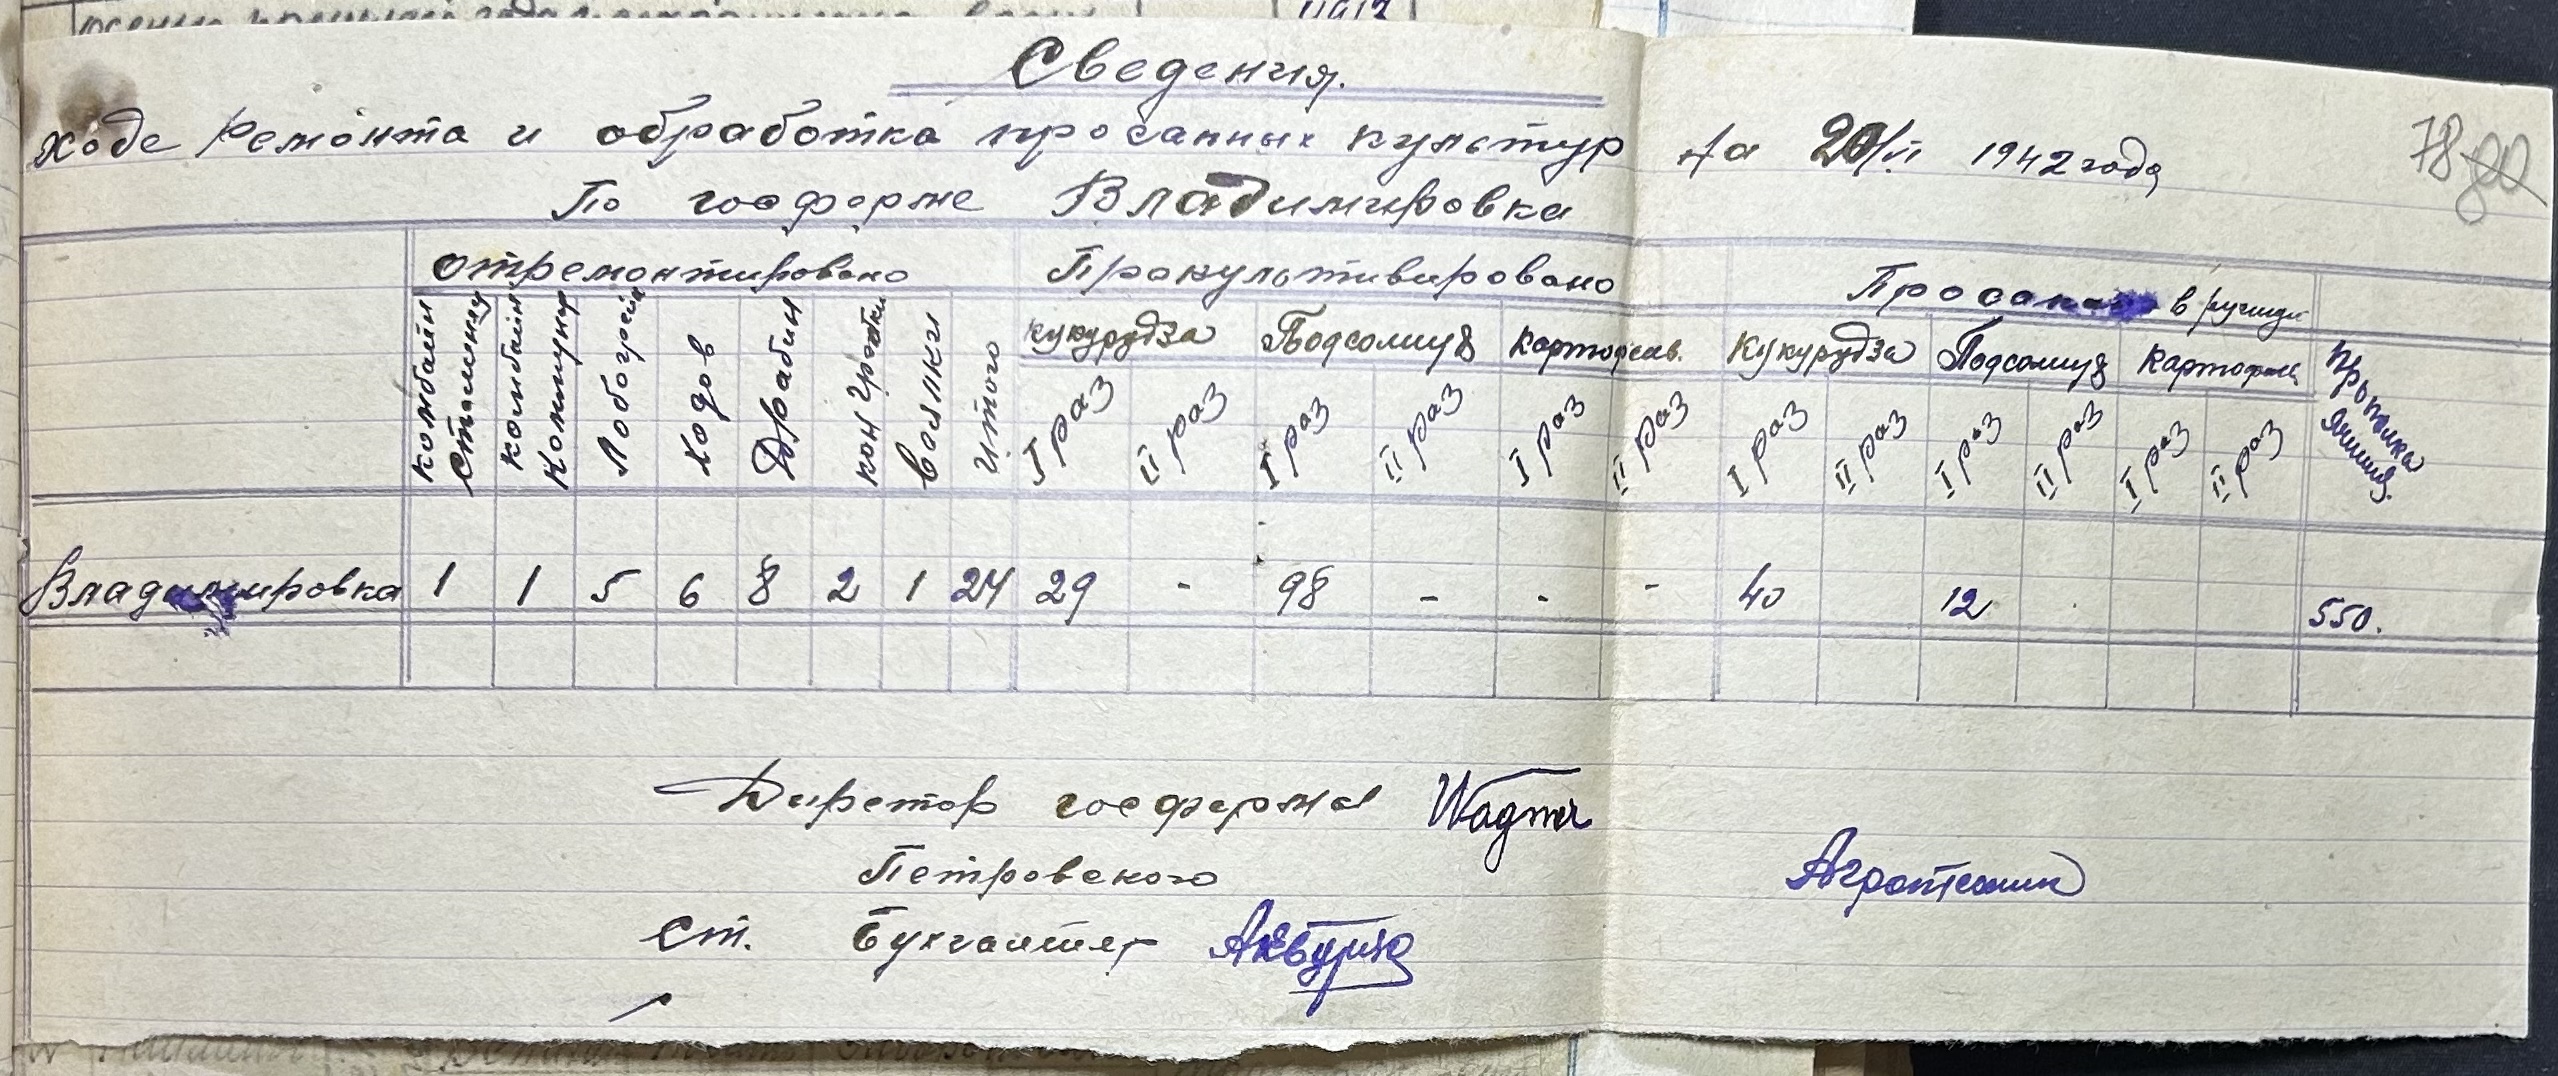 Сведения.
ходе ремонта и обработка просапных культур на 20/VI 1942 года
78 80
По госферме Владимировка
отремонтировано Прокультивировано Просапано в ручную
кукурудза Подсолнух картофель. Кукурудза Подсолнух картофель
комбайн Сталинец комбайн Коммунар Лобогреек Ходов Драбин кон грабки волки итого I раз II раз I раз II раз I раз II раз I раз II раз I раз II раз I раз II раз
Владимировка 1 1 5 6 8 2 1 24 29 - 98 - - - 40 12 550.
Диретор госфермы Wagner
Петровского
Агротехник
ст. Бухгалтер